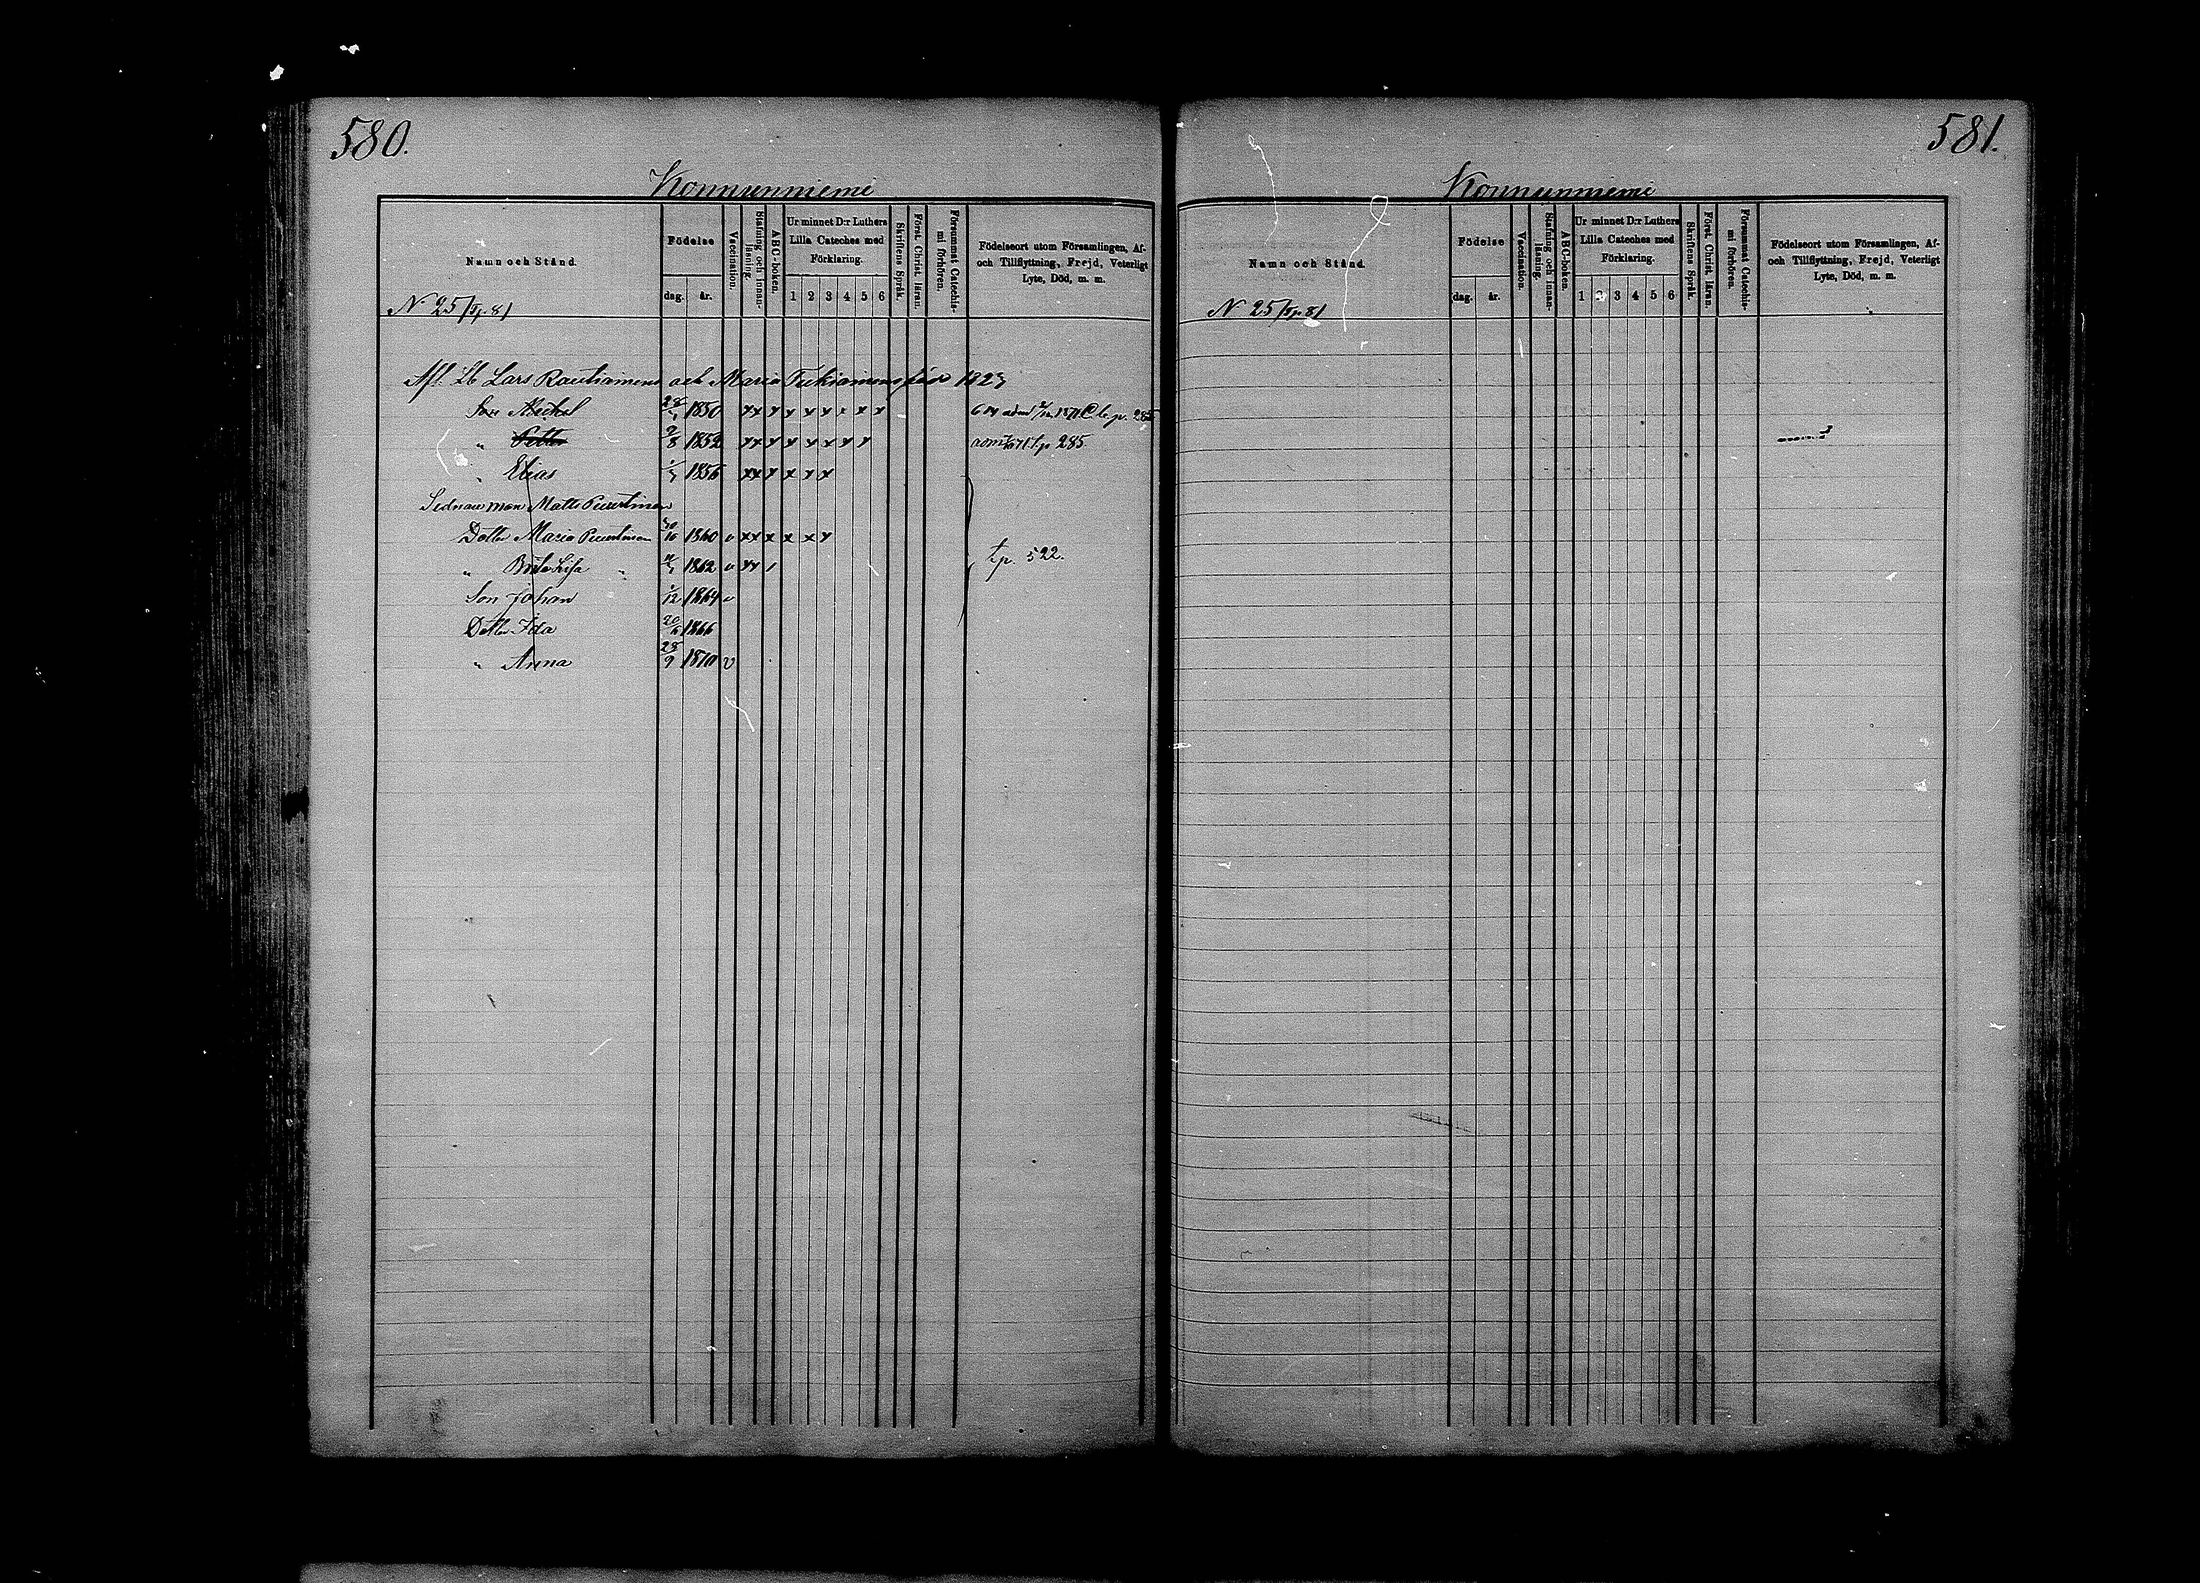 580.
Konnunniemi
Namn och Stånd.
Födelse
dag. år.
Vaccination.
Stafning och innanläsning.
ABC-boken.
Ur minnet D:r Luthers Lilla Cateches med Förklaring.
1 2 3 4 5 6
Skriftens Språk.
Först. Christ. läran.
Försummat Catechismi förhören.
Födelseort utom Församlingen, Af- och Tillflyttning, Frejd, Veterligt Lyte, Död, m. m.
N 25
Afl. Lb Lars Rautiainens och Maria Tukiainens född 1823
Son Michel 1850 x x x x x x x x x
" Petter 8 1852 x x x x x x x x 285
" Elias 1856 x x x x x x
Sednare man Matts
Dotter Maria 10 1860 v x x x x x x
" Brita Lisa " 1862 v x x /
tp. 522.
Son Johan 12 1864 v
Dotter Ida 20/6 1866
" Anna 28/9 1870 v
581.
Konnunniemi
Namn och Stånd.
Födelse
dag. år.
Vaccination.
Stafning och innanläsning.
ABC-boken.
Ur minnet D:r Luthers Lilla Cateches med Förklaring.
1 2 3 4 5 6
Skriftens Språk.
Först. Christ. läran.
Försummat Catechismi förhören.
Födelseort utom Församlingen, Af- och Tillflyttning, Frejd, Veterligt Lyte, Död, m. m.
N 25